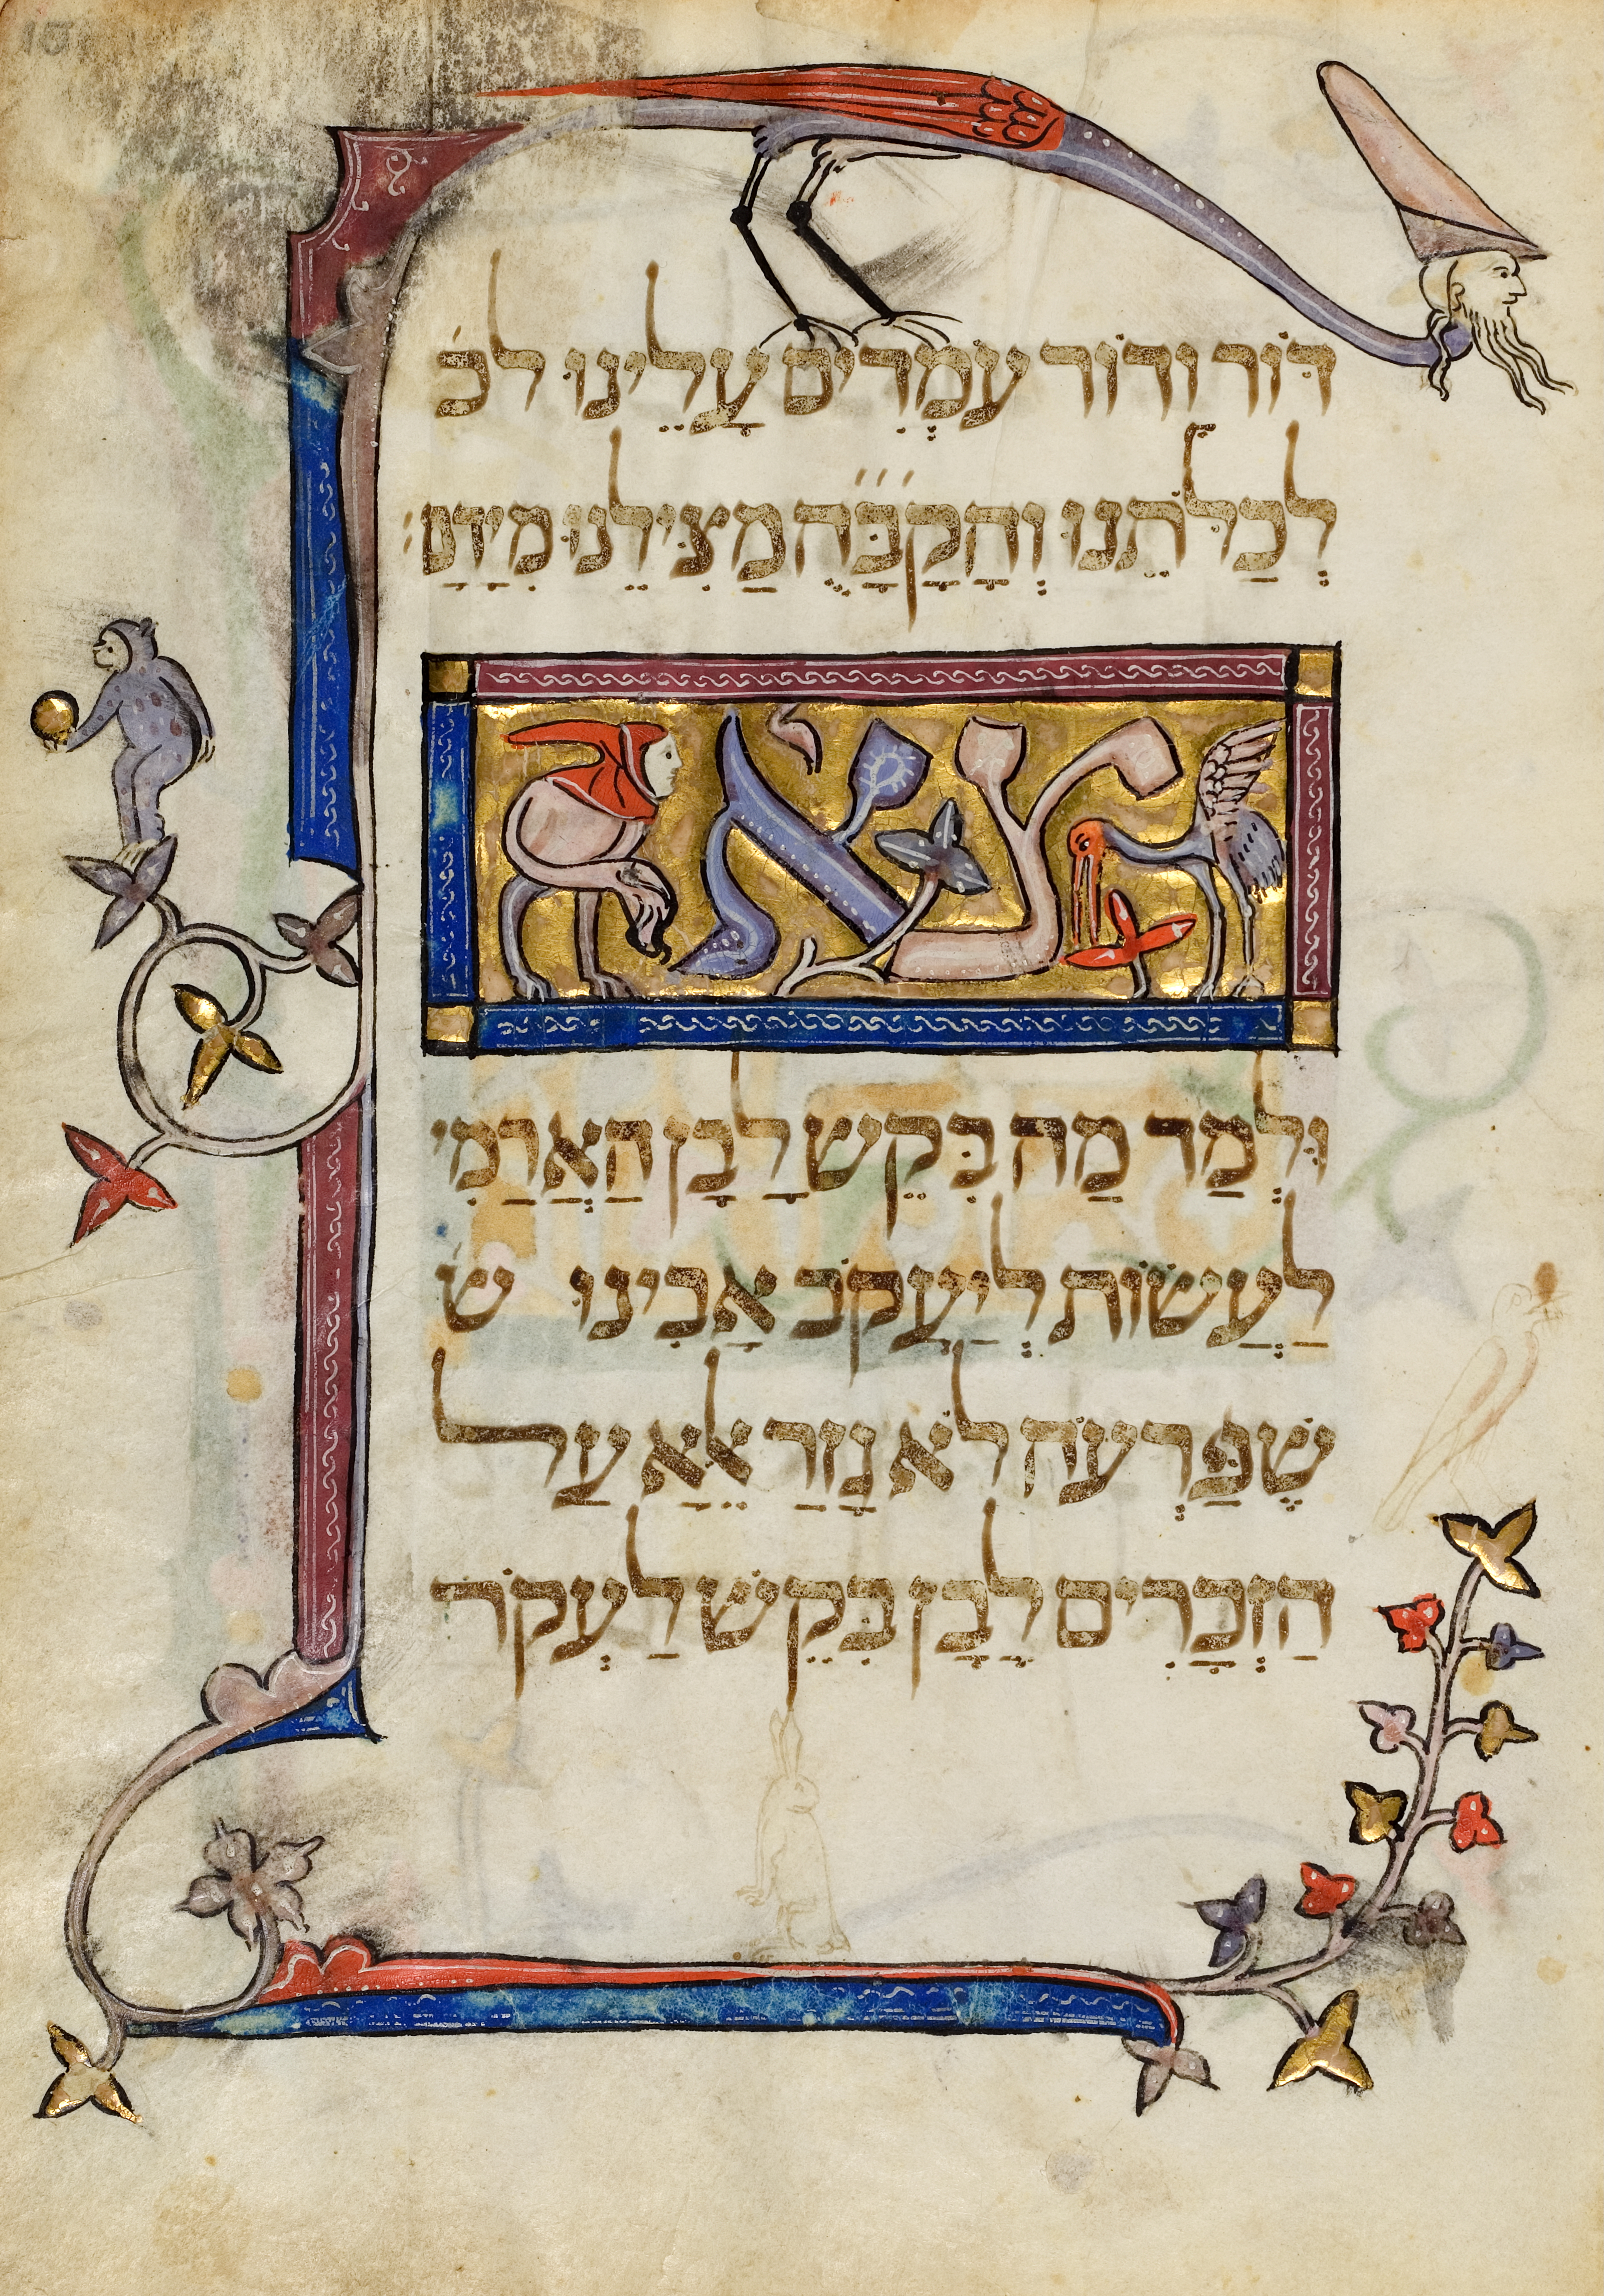 דּוֹר ודוֹר עֹמְדִים עָלֵינוּ לכֹ
לְכַלֹּתֵנוּ וְהַקָבָּ״ה מַצִּילֵנוּ מִיָדָם׃
צא
וּלְמַד מַה בִּקֵשׁ לָבָן הַאֲרַמִי
לַעֲשׂוֹת לְיַעֲקֹב אָבִינוּ שׁ
שֶׁפַּרְעֹה לֹא גָזַר אֵלָא עַל
הַזְכָרִים לָבָן בִּקֵשׁ לַעְקֹר